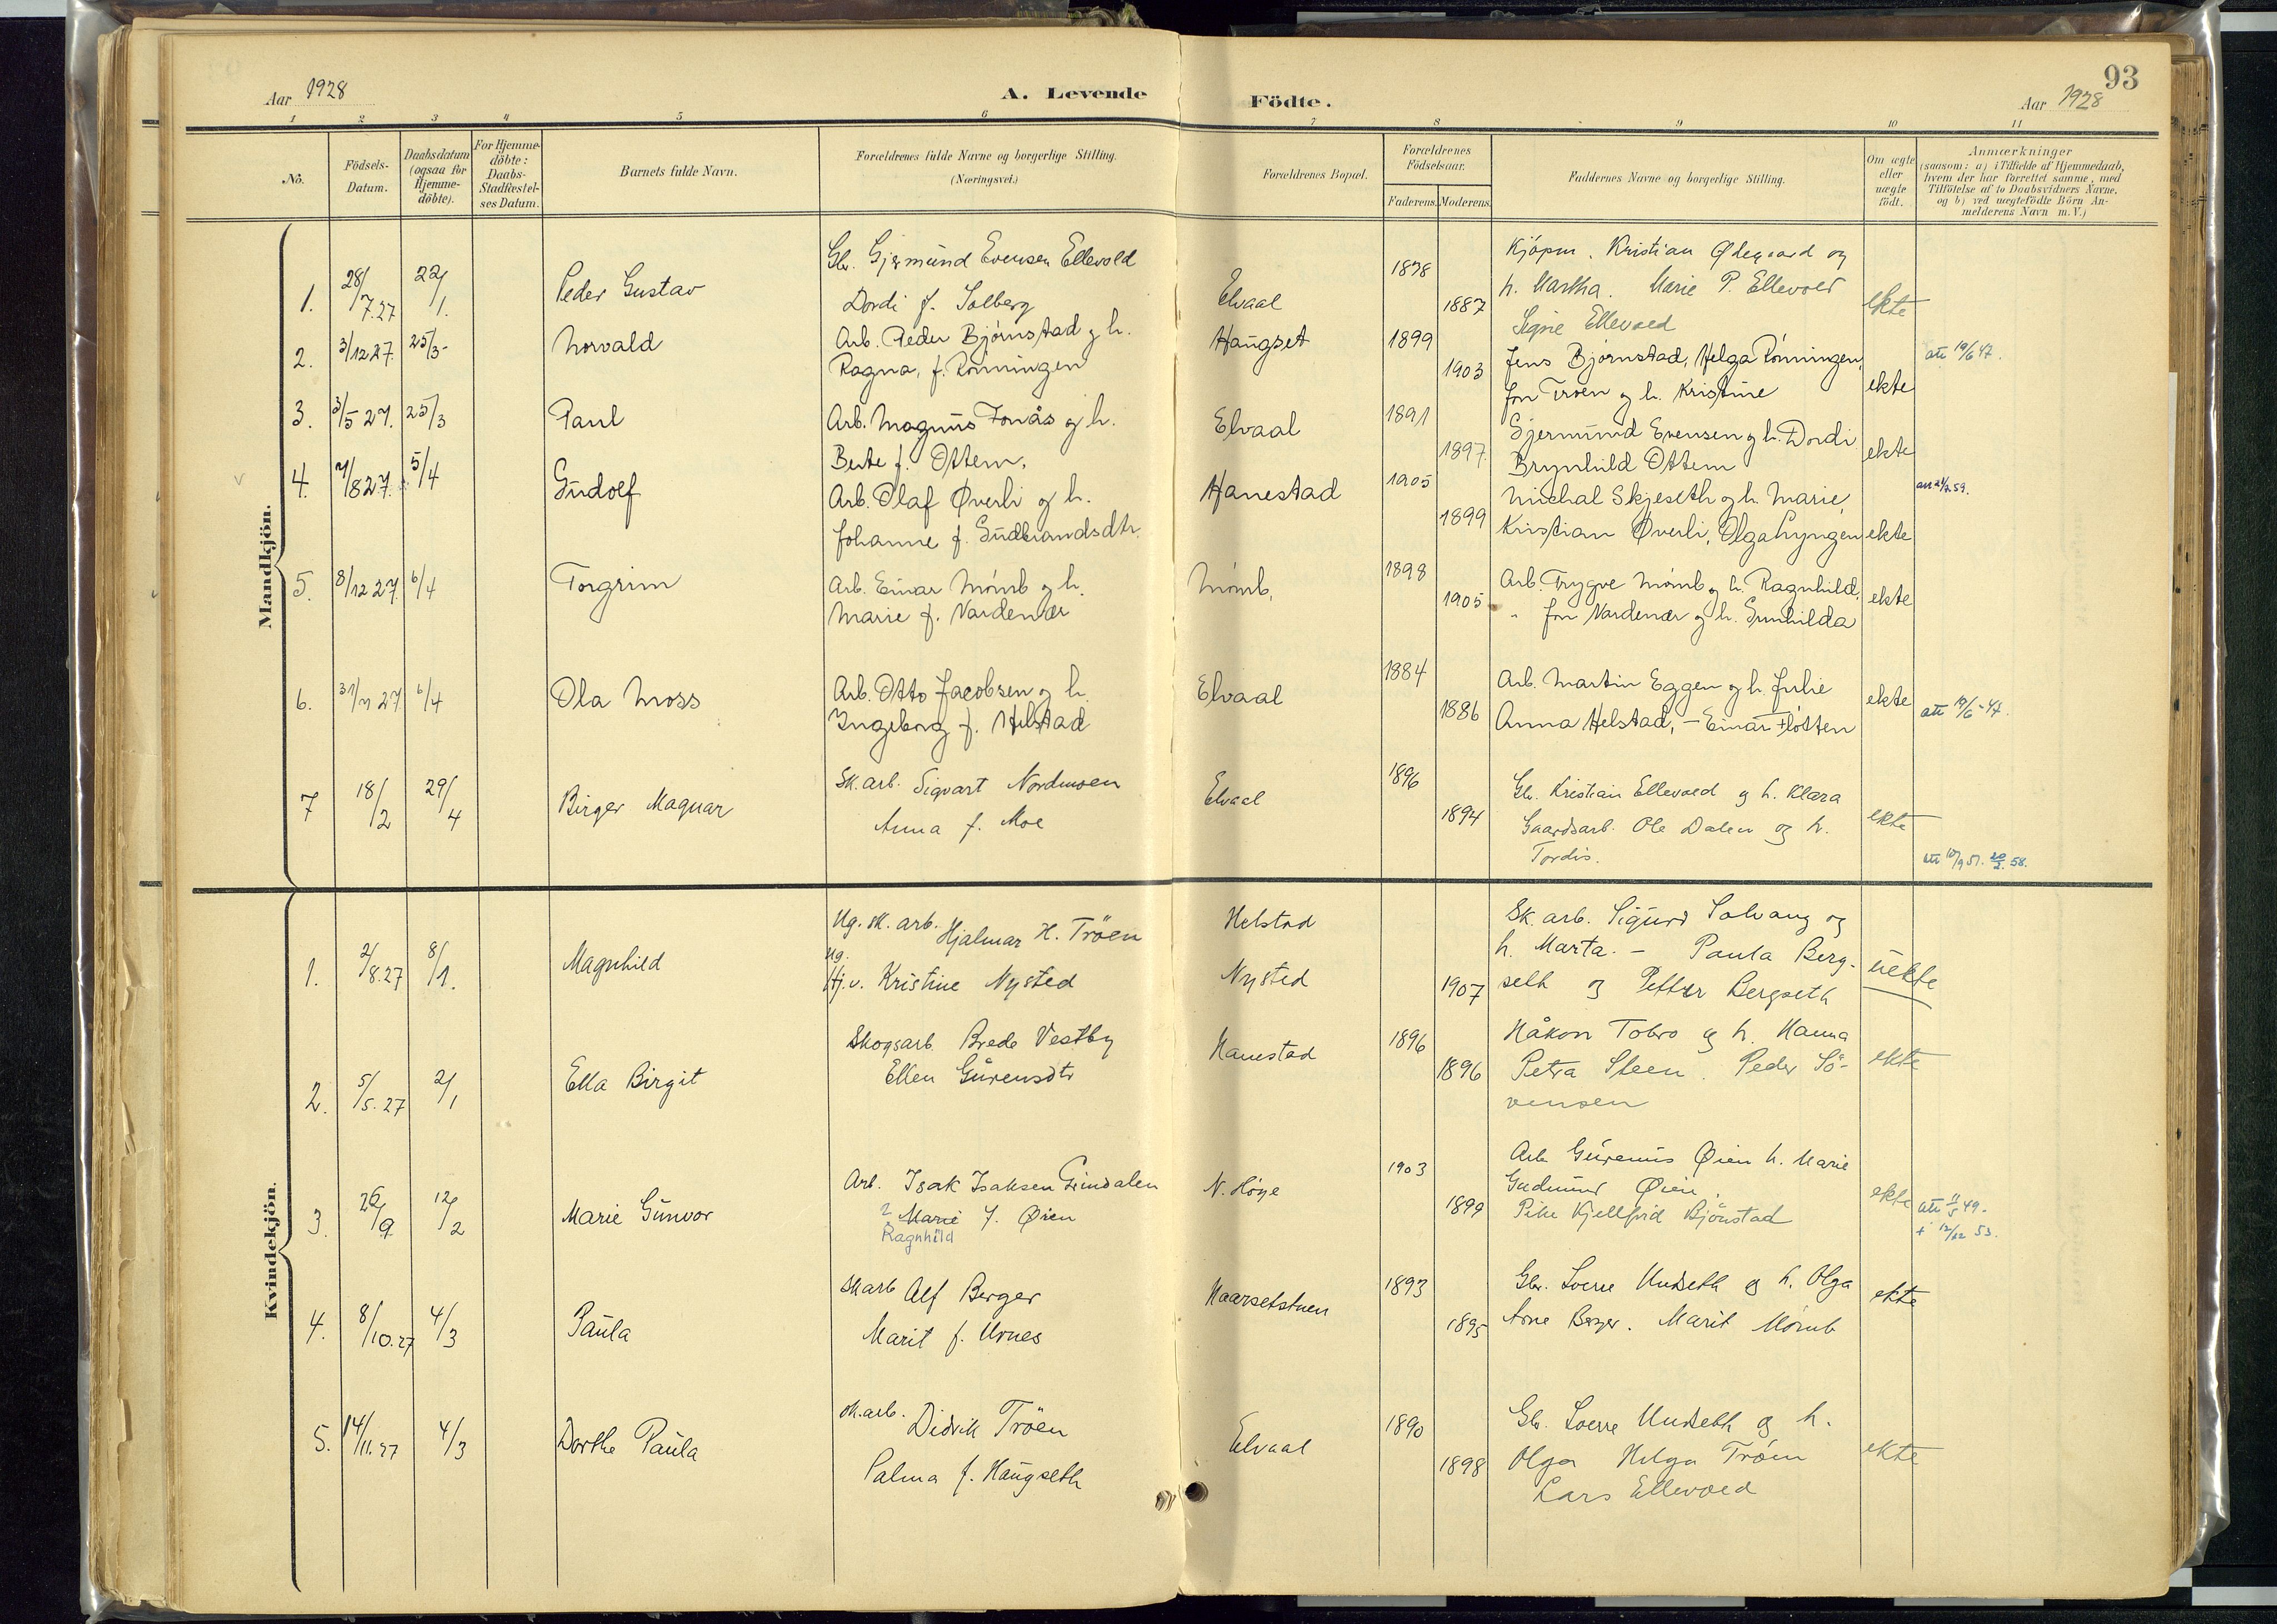 93
Aar 1928
A. Levende Födte.
Aar 1928
1 2 3 4 5 6 7 8 9 10 11
No.
Födsels-Datum.
Daabsdatum (ogsaa for Hjemme-döbte).
For Hjemme-döbte: Daabs-Stadfæstel-ses Datum.
Barnets fulde Navn.
Forældrenes fulde Navne og borgerlige Stilling.
(Næringsvei.)
Forældrenes Bopæl.
Forældrenes Födselsaar.
Faderens. Moderens.
Faddernes Navne og borgerlige Stilling.
Om ægte eller uægte födt.
Anmærkninger
(saasom: a) i Tilfælde af Hjemmedaab,
hvem der har forrettet samme, med
Tilföielse af to Daabsvidners Navne,
og b) ved uægtefödte Börn An-
melderens Navn m. V.)
Mandkjön.
1. 28/7.27 22/1. Peder Gustav
Gb. Gjermund Evensen Ellevold
Dordi f. Solberg
Elvaal 1878 1887
Kjöpm. Kristian Ødegaard og
h. Martha. Marie P. Ellevold
Signe Ellevold
ekte
2. 3/12 27. 25/3 Norvald
Arb. Peder Björnstad g h.
Ragna, f. Rönningen
Haugset 1899 1903
Jens Björnstad, Helga Rönningen,
Jon Troen g h. Kristine
ekte
att 19/6 47.
3. 3/5 27. 25/3 Paul
Arb. Magnus Fonås g h.
Berte f. Ottem.
Elvaal 1891 1897
Gjermund Evensen g h. Dordi
Brynhild Ottem
ekte
v 4. 7/8 27. 5/4 Gudolf
Arb. Olaf Øverli g h.
Johanne f. Gudbrandsdtr.
Hanestad 1905 1899
Michal Skjeseth g h. Marie,
Kristian Øverli, Olga Lyngen
ekte
5. 8/12 27. 6/4 Torgrim
Arb. Einar Mömb g h.
Marie f. Vardenær
Mömb, 1898 1905
Arb. Trygve Mömb g h. Ragnhild,
" Jon Vardenær g h. Gunhilda
ekte
6. 31/ 27 6/4 Ola Moss
Arb. Otto Jacobsen g h.
Ingeborg f. Helstad
Elvaal 1884 1886
Arb. Martin Eggen g h. Julie
Anna Helstad, – Einar Flötten
ekte
att 19/6 - 47.
7 18/2 29/4 Birger Magnar
Sk. arb. Sigvart Nordmoen
Anna f. Moe
Elvaal 1896 1894
Gb. Kristian Ellevold g h. Klara
Gaardsarb. Ole Dalen og h.
Tordis.
ekte
Kvindekjön.
1. 2/8.27 8/1. Magnhild
Ug. sk. arb. Hjalmar H. Tröen
Ug.
Hj. v. Kristine Nysted
Helstad
Nysted 1907
Sk. arb. Sigurd Solvang og
h. Marta. – Paula Berg-
seth og Petter Bergseth
uekte
2. 5/5.27 2/1 Ella Birgit
Skogsarb. Brede Vestby
Ellen Gurensdtr
Hanestad 1896 1896
Håkon Tobro og h. Hanna
Petra Steen. Peder Sö-
rensen
ekte
3. 26/9 12/2 Marie Gunvor
Arb. Isak Isaksen Grindalen
Marie f. Øien
Ragnhild
N. Höye 1903 1899
Arb Gurenus Øien h. Marie
Gudmund Øien.
Pike Kjellfrid Björnstad
ekte
4. 8/10.27 4/3 Paula
Skarb Alf Berger
Marit f. Urnes
Haarsetstuen 1893 1895
Gbr. Sverre Undseth og h. Olga
Arne Berger. Marit Mömb
ekte
5. 14/11.27 4/3 Dorthe Paula
sk. arb. Didrik Tröen
Palma f. Haugseth
Elvaal 1890 1898
Gb. Sverre Undseth og h.
Olga Helga Tröen
Lars Ellevold
ekte